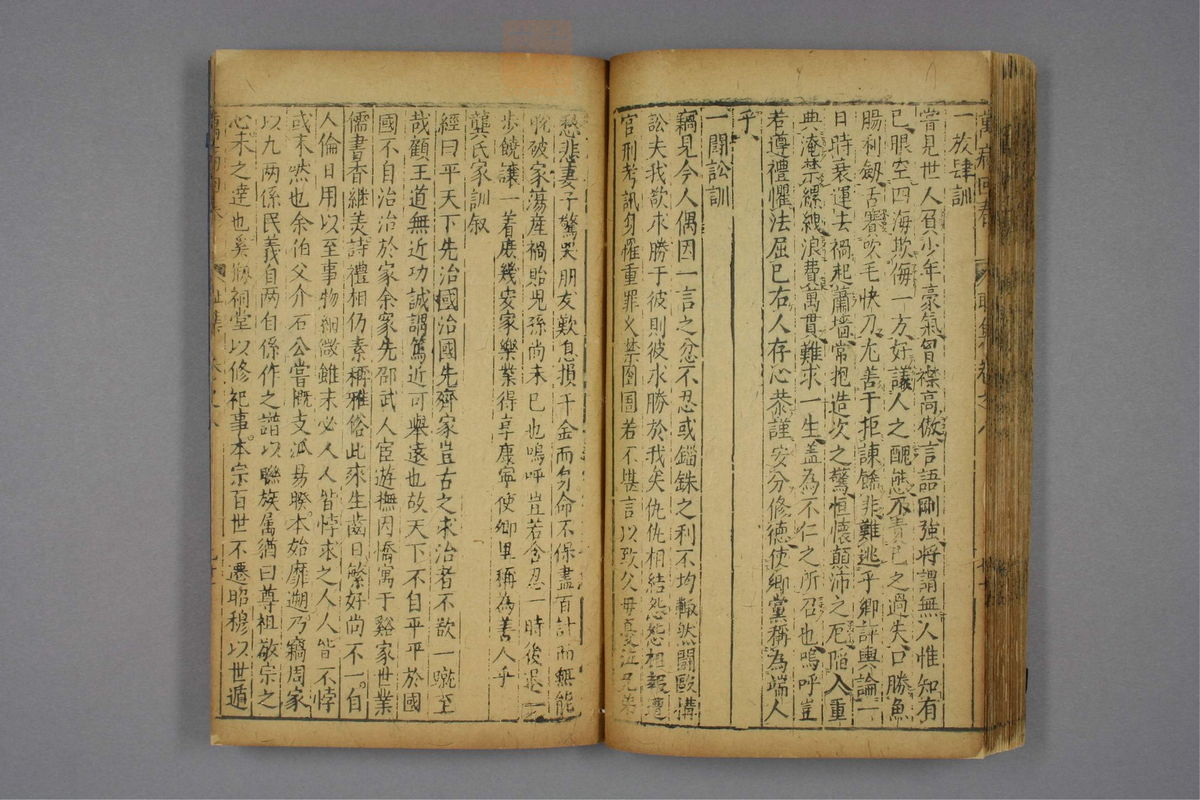 萬病回春
一放肆訓
嘗見世人負少年豪氣胷襟高傲言語剛強將謂無人惟知有
已眼空四海欺侮一方好議人之醜態不責已之過失口勝魚
腸利劔舌賽吹毛快刀尢善于拒諫餙非難逃乎鄉評輿論一
日時衰運去禍起蕭墻常抱造次之驚恒懷顛沛之厄陷入重
典淹禁縲絏浪費萬貫難求一生盖為不仁之所召也嗚呼豈
若遵禮懼法屈已右人存心恭謹安分修德使鄉黨稱為端人
乎
一鬪訟訓
竊見今人偶因一言之忿不忍或錙銖之利不均輙然鬪毆搆
訟夫我欲求勝于彼則彼求勝於我矣仇仇相結怨怨相報遭
官刑考訊身罹重罪久禁囹圄若不堪言以致父母憂泣兄弟
愁悲妻子驚哭朋友歎息損千金而身命不保盡百計而無能
脫破家蕩產禍貽兒孫尚未已也嗚呼豈若含忍一時後退一
步饒讓一着庶幾安家樂業得享康寧使鄉里稱為善人乎
龔氏家訓叙
經曰平天下先治國治國先齊家豈古之求治者不欲一蹴至
哉顧王道無近功誠謂篤近可舉遠也故天下不自平平於國
國不自治治於家余家先邵武人宦遊撫因僑寓于谿家世業
儒書香継美詩禮相仍素稱雅俗此來生齒日繁好尚不一自
人倫日用以至事物細微雖未必人人皆悖求之人人皆不悖
或未然也余伯父介石公嘗慨支派易睽本始靡遡乃竊周家
以九兩係民義自兩自係作之譜以聮族属猶曰尊祖敬宗之
心未之達也奚搆祠堂以修祀事本宗百世不遷昭穆以世遞